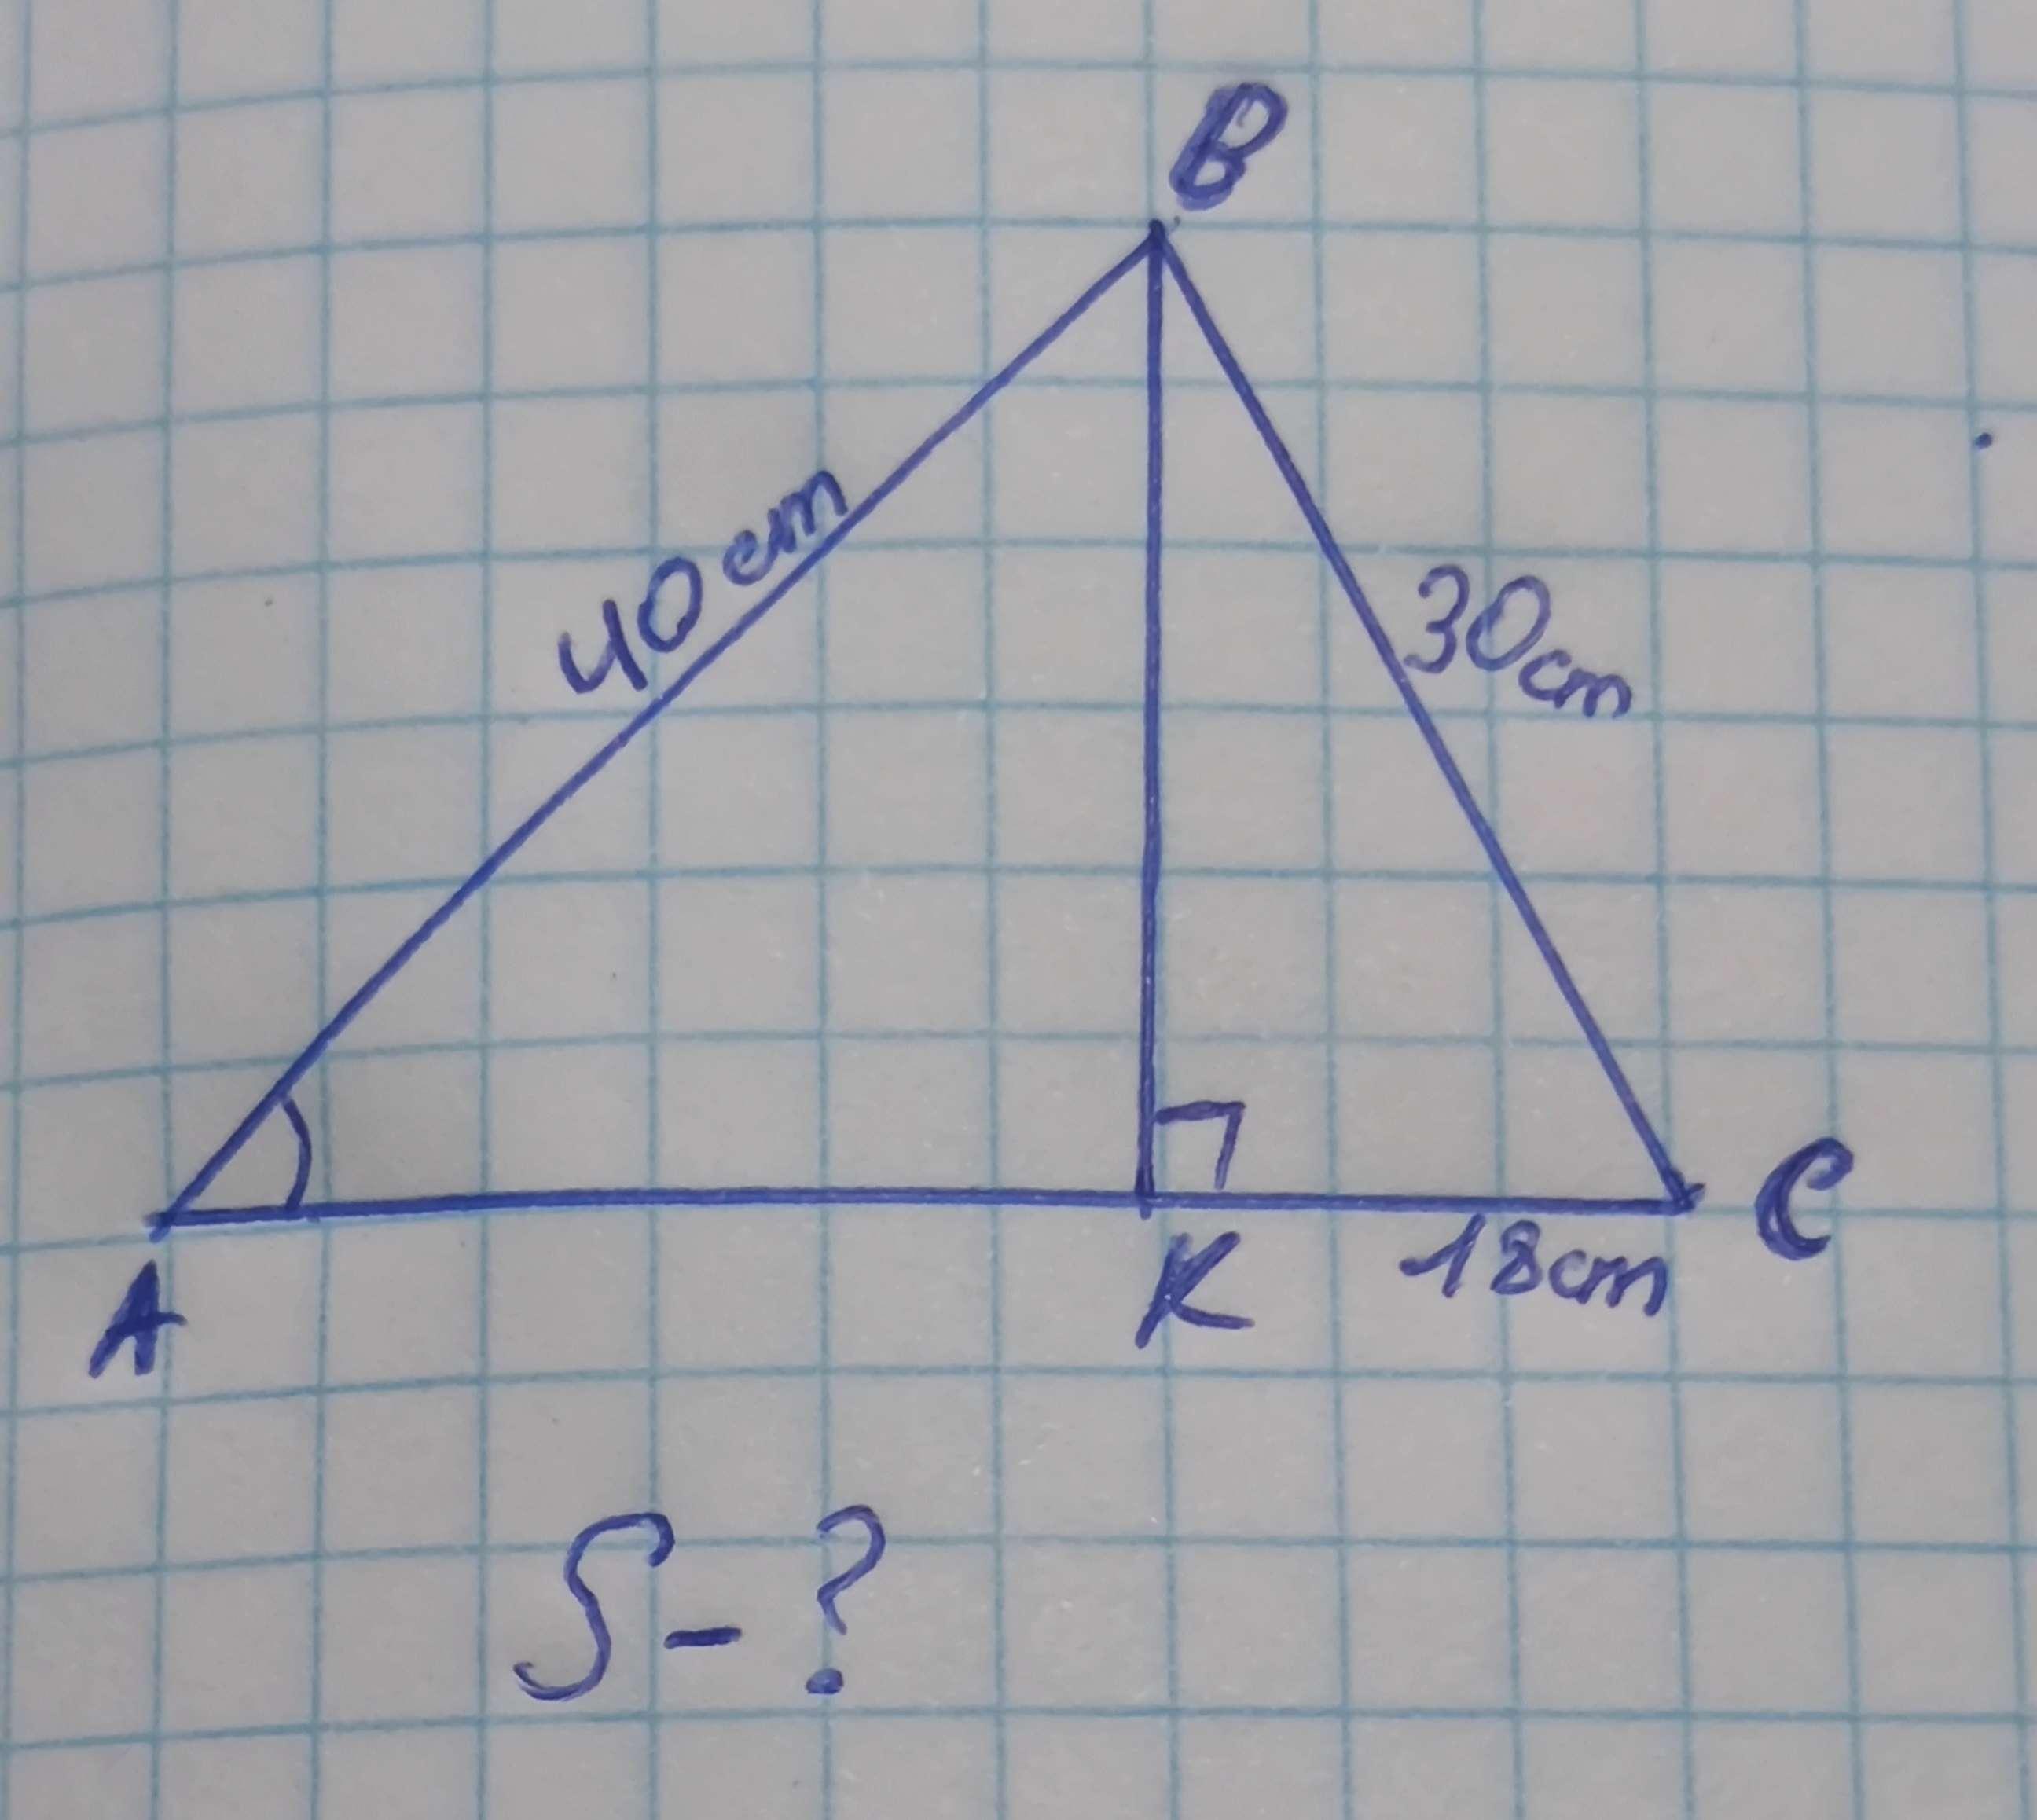 B
40cm
30cm
A
K
18cm
C
S-?